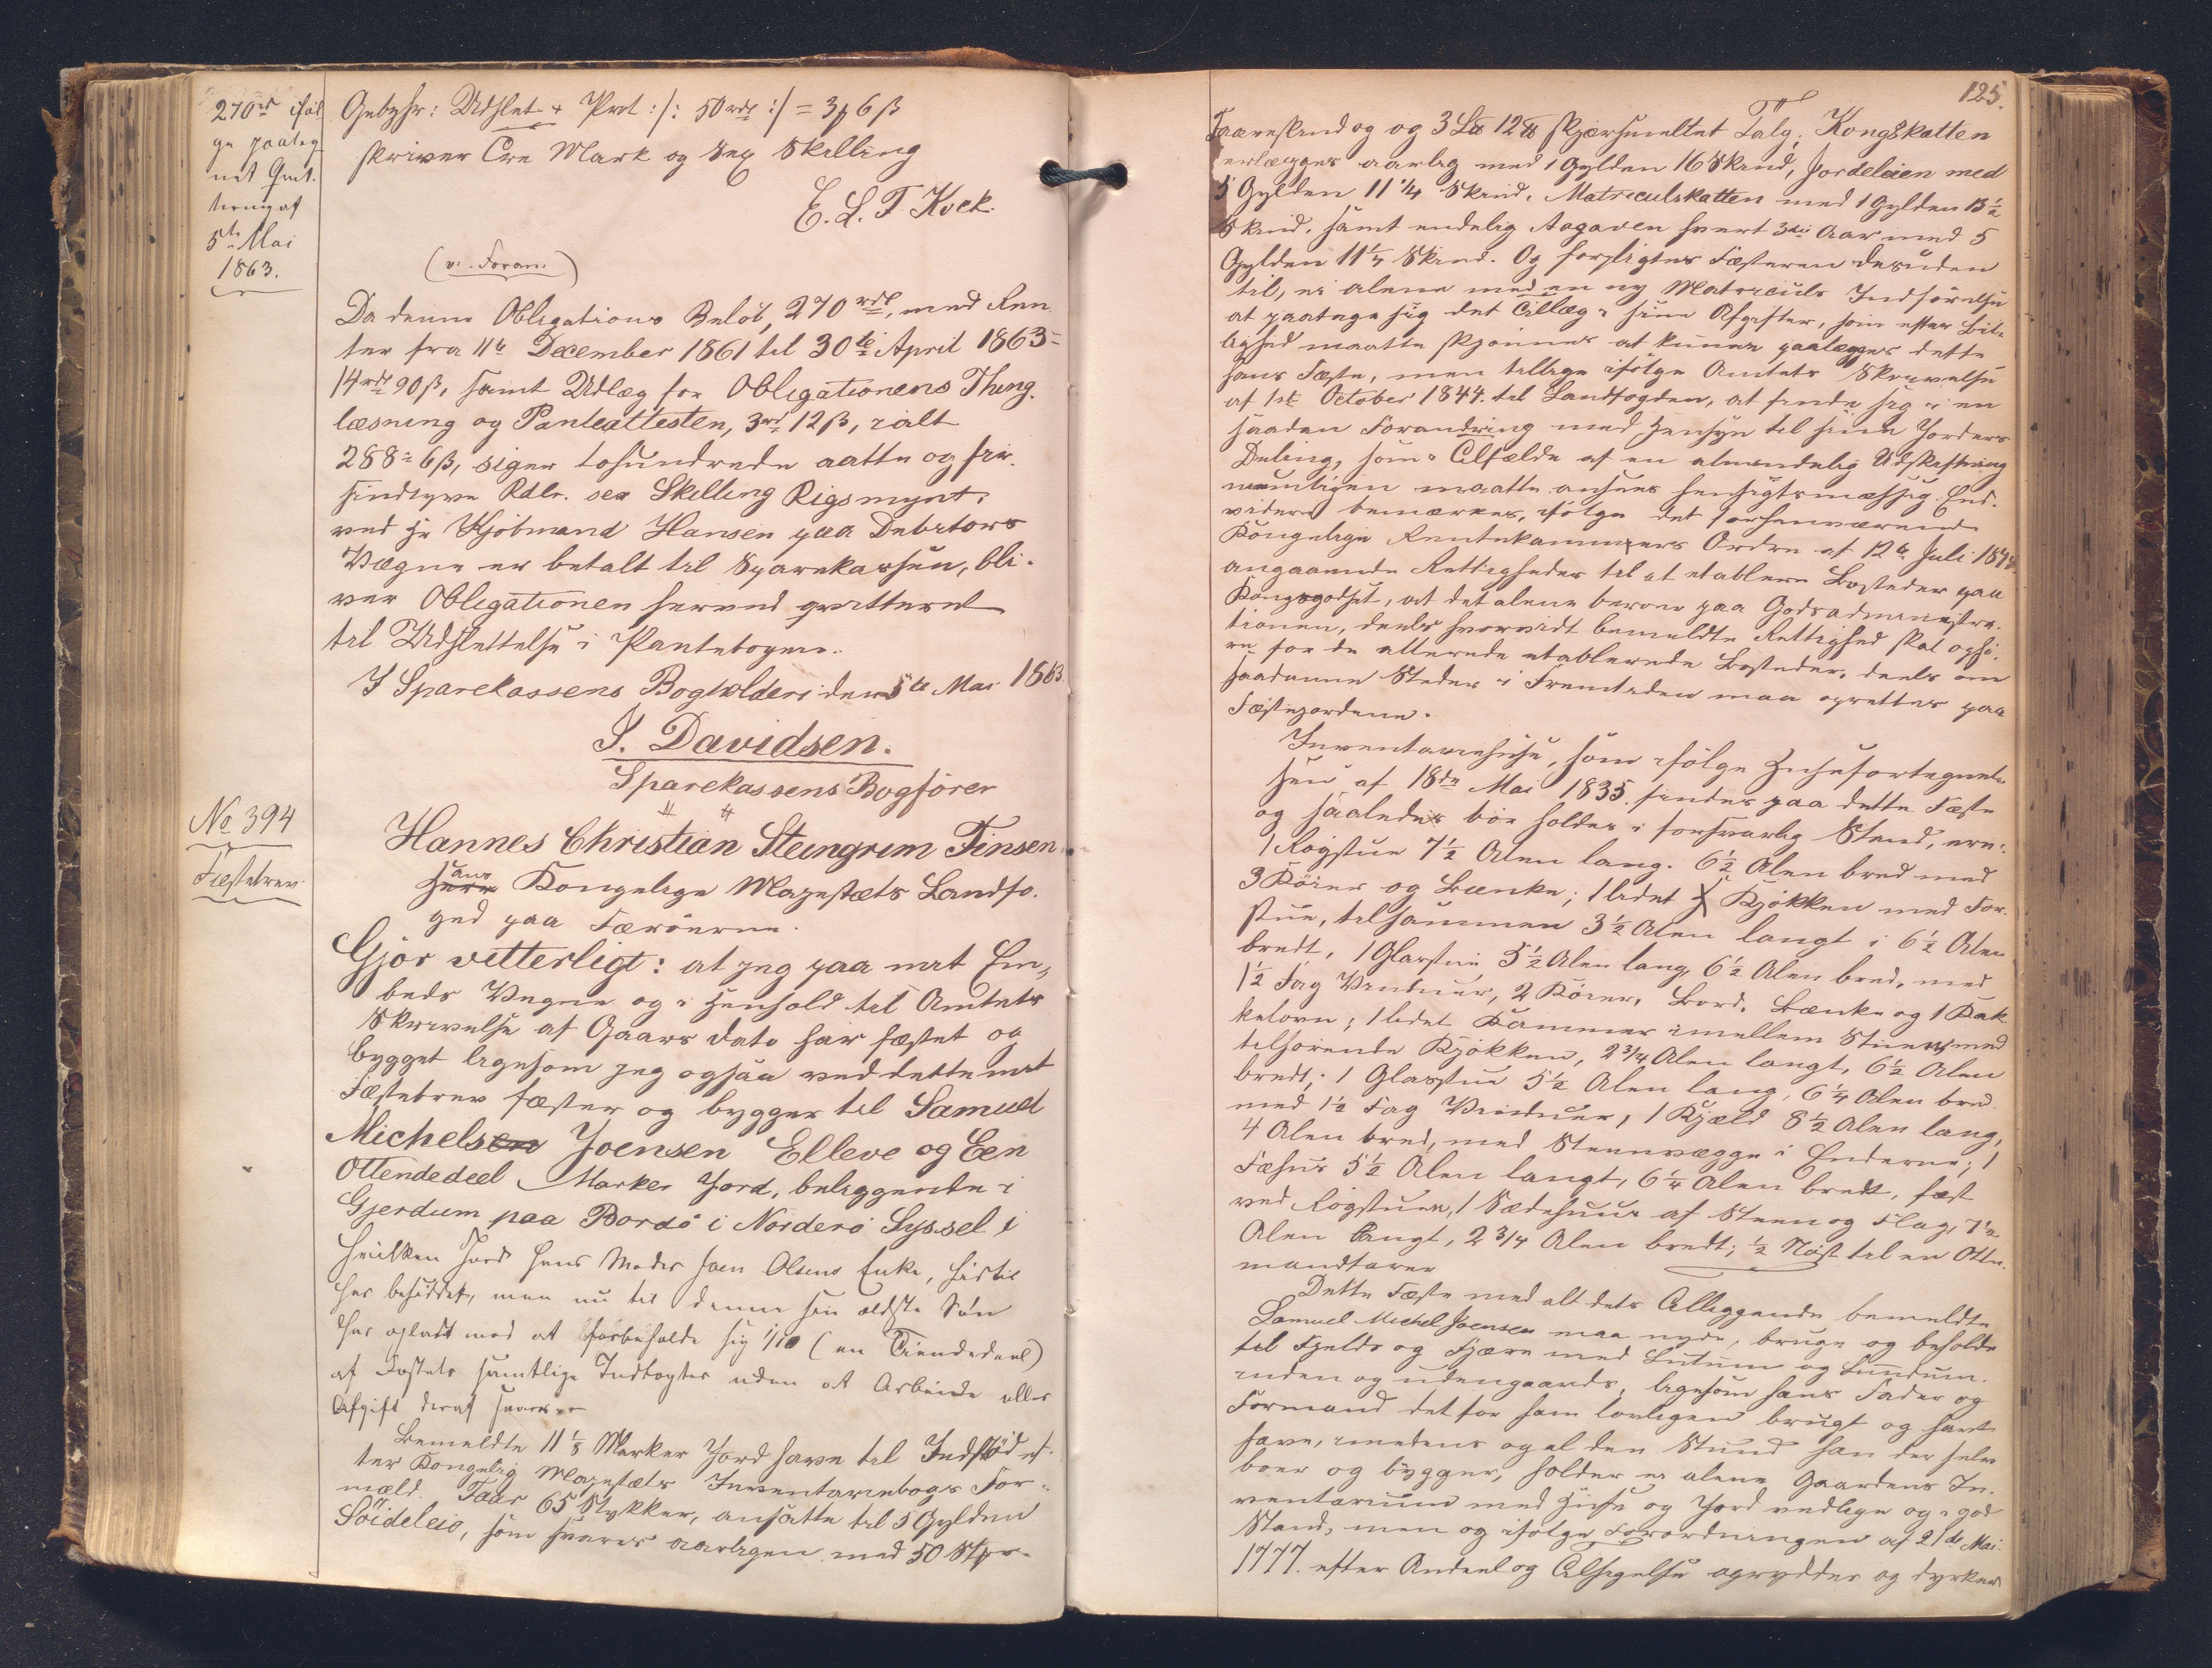 270 rd iføl
ge paateg
net Qvit.
tering af
5te Mai
1863.
Gebyhr: Udslet. + Prot :/: 50 rdl :/ = 3 ƒ 6 β
skriver Een Mark og sex Skilling
E. L. T. Kock.
(v. Foran.)
Da denne Obligations Beløb, 270 rdl, med Ren
ter fra 11te December 1861 til 30te April 1863 =
14 rdl 90 β, samt Udlæg for Obligationens Thing.
læsning og Panteattesten, 3 rdl 12 β, ialt
288 = 6 β, siger tohundrede aatte og fir.
sindtyve Rdlr. sex Skilling Rigsmynt,
ved Hr Kjöbmand Hansen paa Debitors
Vægne er betalt til Sparekassen, bli.
ver Obligationen herved qvitteret
til Udslettelse i Pantebogen.
I Sparekassens Bogholderi den 5te Mai 1863.
J. Davidsen.
Sparekassens Bogförer
No 394
Fæstebrev
Hannes Christian Steingrim Finsen
Hans Kongelige Majestæts Landfo.
ged paa Færöerne.
Gjör vitterligt: at jeg paa mit Em,
beds Vegne og i Henhold til Amtets
Skrivelse af Gaars dato har fæstet og
bygget ligesom jeg ogsaa ved dette mit
Fæstebrev fæster og bygger til Samuel
Michelsen Joensen Elleve og Een
Ottendedeel Marker Jord, beliggende i
Gjerdum paa Bordö i Norderö Syssel i
hvilken Jord hans Moder Joen Olsens Enke, hidtil
har besiddet, men nu til denne sin ældste Søn
har opladt mod at forbeholde sig 1/10 (en Tiendedeel)
af Fæstets samtlige Indtægter uden at Arbeide eller
Afgift deraf svares.
Bemeldte 11 1/8 Marker Jord have til Indstöd ef.
ter Kongelig Majestæts Inventariebogs For-
mæld. Faar 65 Stykker, ansatte til 5 Gylden
Söideleie, som svares aarligen med 50 Stkr.
125.
Faareskind og og 3 L℔ 12 ℔ skjærsmeltet Talg, Kongskatten
erlægges aarlig med 1 Gylden 16 Skind, Jordeleien med
5 Gylden 11 1/4 Skind, Matriculskatten med 1 Gylden 13 1/2
Skind, samt endelig Aagaven hvert 3die Aar med 5
Gylden 11 1/4 Skind. Og forpligtes Fæsteren desuden
til, ei alene med en ny Matriculs Indförelse
at paatage sig det Tillæg i sine Afgifter, som efter Bil-
lighed maatte skjønnes at kunne paalægges dette
hans Fæste, men tillige ifölge Amtets Skrivelse
af 1ste October 1844 til Landfogden, at finde sig i en
saadan Forandring med Hensyn til sine Jorders
Deling, som i Tilfælde af en almindelig Udskiftning
muligen maatte ansees hensigtsmæssig. End.
videre bemærkes, ifölge det forhenværende
Kongelige Rentekammers Ordre af 12te Juli 1844
angaaende Rettigheder til at etablere Bosteder paa
Kongsgodset, at det alene beroer paa Godsadministra.
tionen, deels hvorvidt bemeldte Rettighed skal ophö.
re for de allerede etablerede Bosteder, deels om
saadanne Steder i Fremtiden maa oprettes paa
Fæstejordene.
Inventariehuse, som ifölge Huusfortegnel-
sen af 18de Mai 1835. findes paa dette Fæste
og saaledes bör holdes i forsvarlig Stand, ere:
1 Rögstue 7 1/2 Alen lang. 6 1/2 Alen bred med
3 Dörer og Bænke; 1 lidet Kjökken med For.
stue, tilsammen 3 1/2 Alen langt i 6 1/2 Alen
bredt, 1 Glarstue 5 1/2 Alen lang, 6 1/2 Alen bred, med
1 1/2 Fag Vinduer, 2 Dörer, Bord, Bænke og 1 Kak
kelovn; 1 lidet Kammer imellem Stuen med
tilhörende Kjökken, 2 3/4 Alen langt, 6 1/2 Alen
bredt; 1 Glasstue 5 1/2 Alen lang, 6 1/4 Alen bred
med 1 1/2 Fag Vinduer, 1 Kjæld 8 1/2 Alen lang,
4 Alen bred, med Steenvægge i Enderne; 1
Fæhus 5 1/2 Alen langt, 6 1/4 Alen bredt, fast
ved Rögstuen, 1 Sædehuus af Steen og Flag, 7 1/2
Alen langt, 2 3/4 Alen bredt; 1/2 Nöst til en Otte.
mandfarer
Dette Fæste med alt dets Tilliggende bemeldte
Samuel Michel Joensen maa nyde, bruge og beholde
til Fjelds og Fjære med Lutum og Lundum.
inden og udengaards, ligesom hans Fader og
Formand det for ham lovligen brugt og havt
have, imedens og al den Stund han der selv
boer og bygger, holder ei alene Gaardens In.
ventarium med Huse og Jord vedlige og i god
Stand, men og ifölge Forordningen af 21de Mai
1777. efter Andeel og Tilsigelse oprydder og dyrker